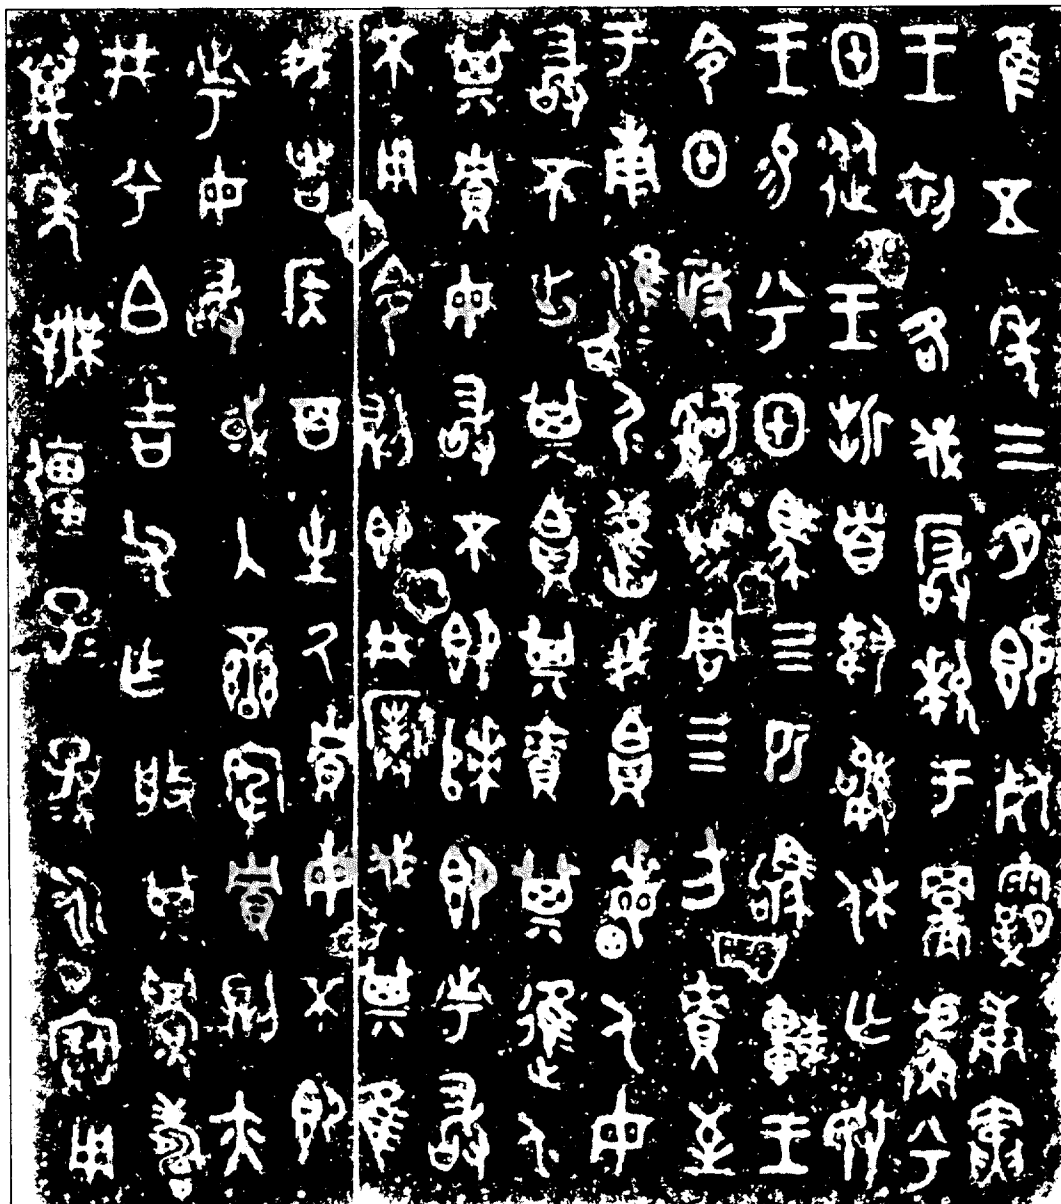 隹五年三月既死霸庚寅
王初各伐玁狁于䣙𠭯兮
甲從王折首執訊休亡敃
王易兮甲馬四匹駒車王
令甲政𤔲成周四方責至
于南淮尸淮尸舊我帛畮人毋
敢不出其帛其責其進人
其貯毋敢不即次即市敢
不用令則即井撲伐其隹
我者侯百生氒貯毋不即
市毋敢或入蠻宄貯則亦
井兮白吉父乍般其眉壽
萬年無疆子子孫孫永寶用